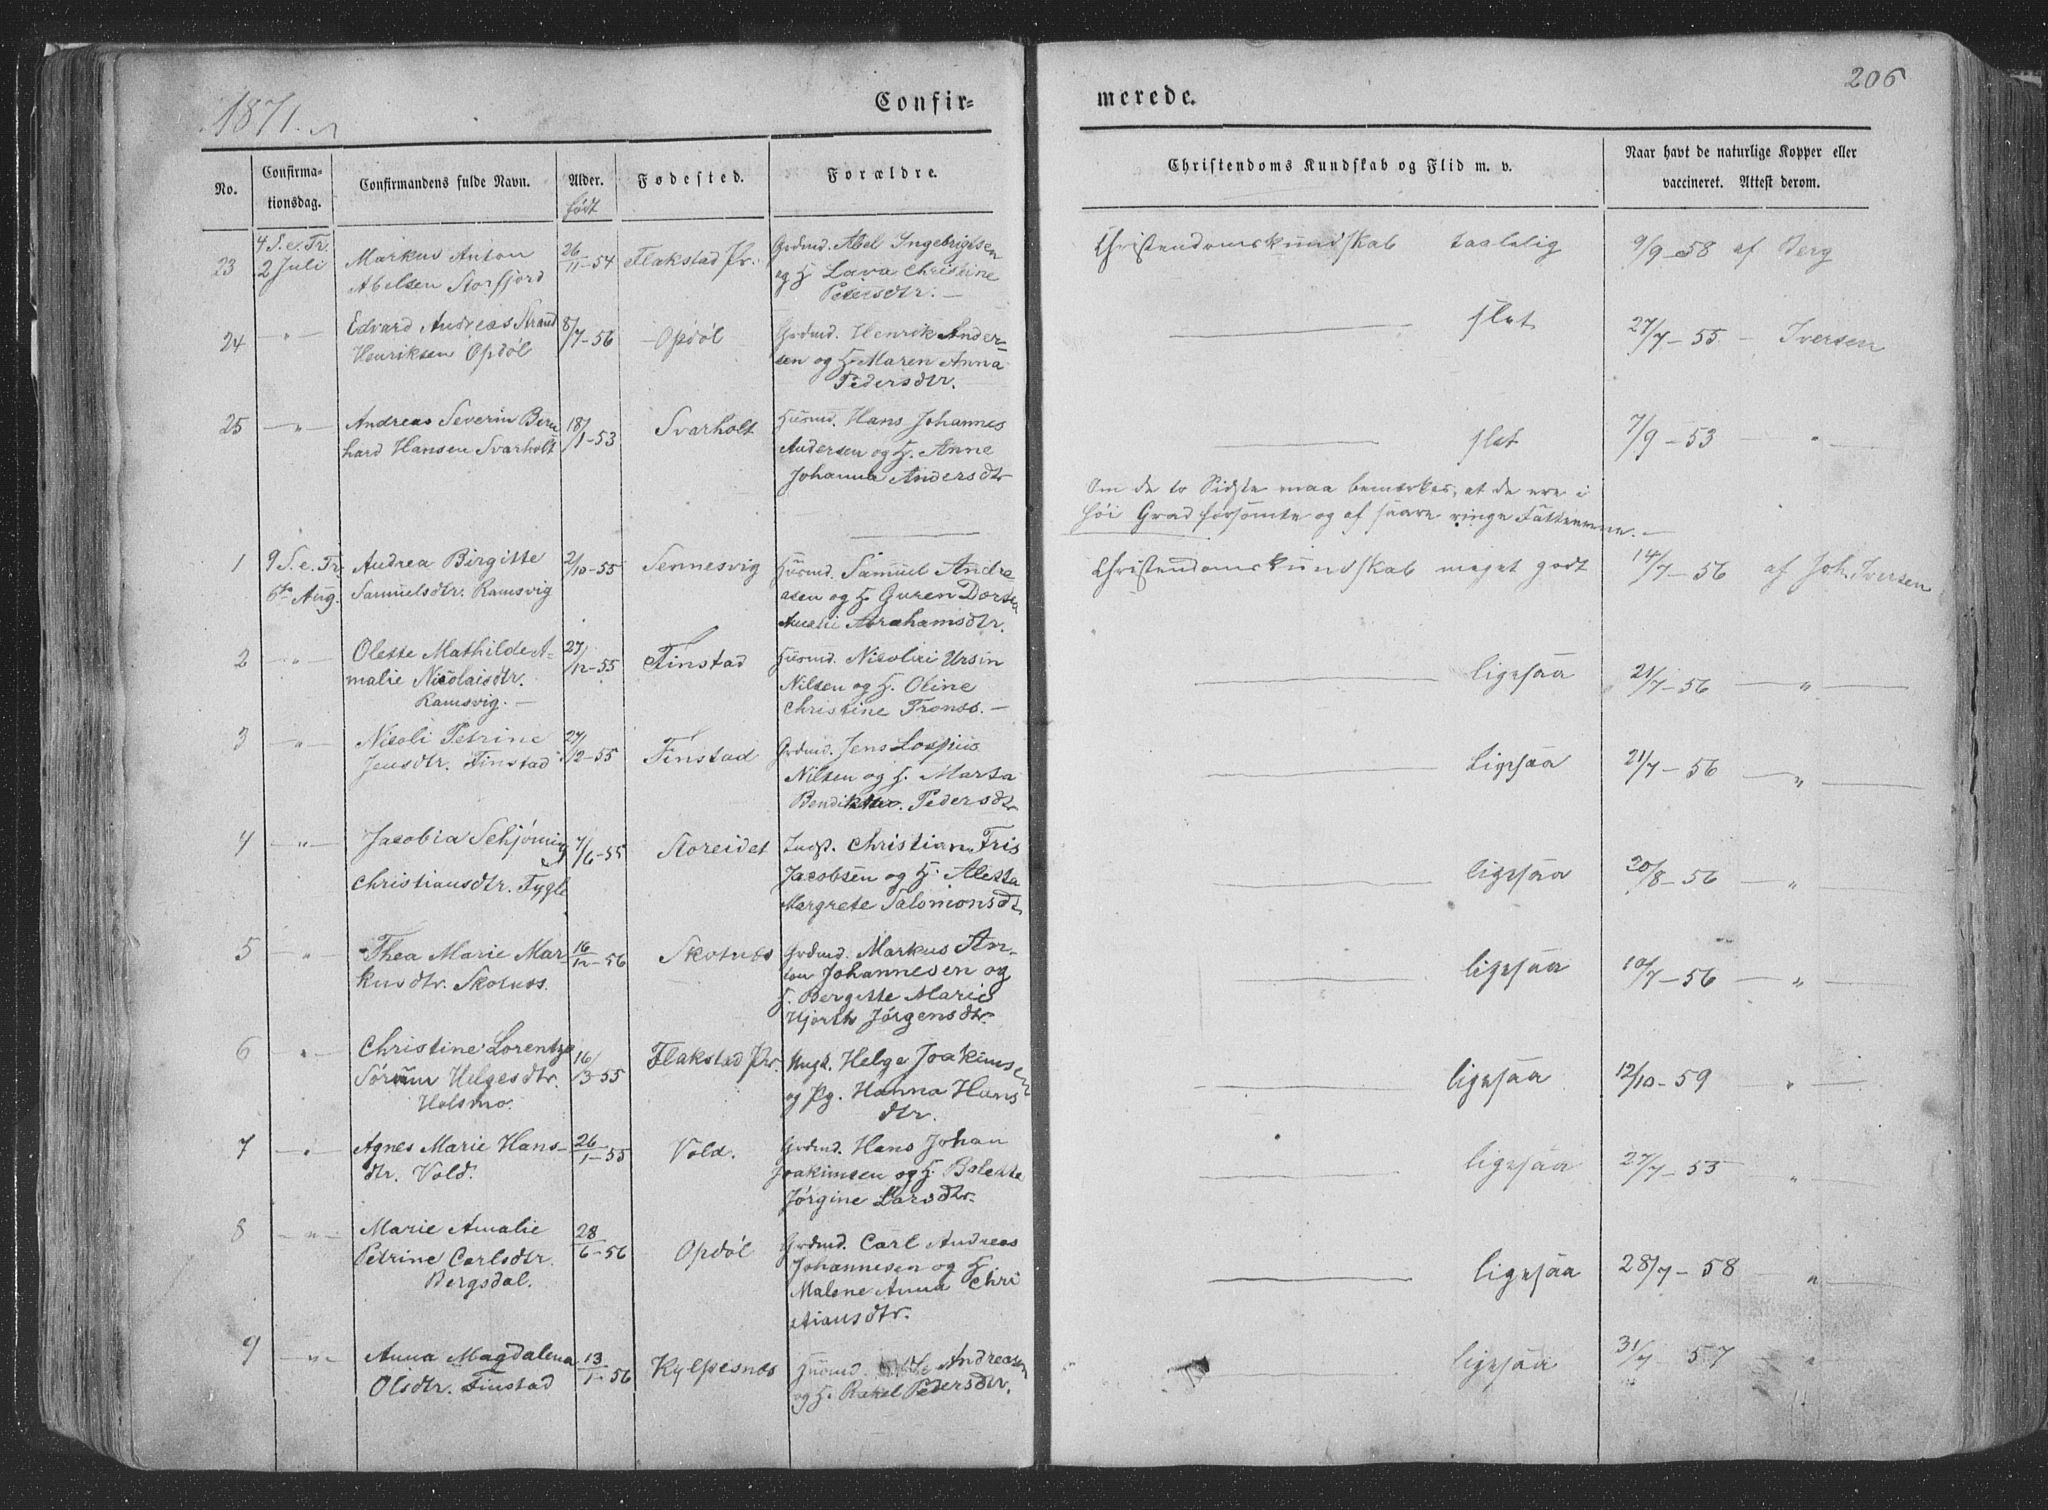 1871.
Confir-
merede.
206
No.
Confirma-
tionsdag.
Confirmandens fulde Navn.
Alder.
født
Fødested.
Forældre.
Christendoms Kundskab og Flid m. v.
Naar havt de naturlige Kopper eller
vaccineret. Attest derom.
23
4 S. e. Tr.
2 Juli
Markus Anton
Abelsen Storfjord
26/11-54
Flakstad Pr.
Grdmd. Abel Ingebrigtsen
og H. Lava Christine
Petersdtr.
Christendomskundskab taalelig
9/9-58 af Berg
24
-"-
Edvard Andreas Strand
Henriksen Opdøl
8/7-56
Opdøl
Grdmd. Henrik Ander-
sen og H. Maren Anna
Pedersdtr.
slet
27/7-55 - Iversen
25
-"-
Andreas Severin Bern
hard Hansen Svarholt
18/1-53
Svarholt
Husmd. Hans Johannes
Andersen og H. Anne
Johanna Andersdtr
slet
7/9-53 - "
Om de to Sidste maa bemærkes, at de ere i
høi Grad forsømte og af saare ringe Fatteevne.
1
9 S. e. Tr.
6te Aug.
Andrea Birgitte
Samuelsdtr. Ramsvig
2/10-55
Sennesvig
Husmd. Samuel Andre
asen og H. Guren Dorte
Amalie Abrahamsdtr.
Christendomskundskab meget godt
14/7-56 af Joh. Iversen
2
-"-
Olette Mathilde A-
malie Nicolaisdtr.
Ramsvig. -
27/12-55
Finstad
Husmd. Nicolai Ursin
Nilsen og H. Oline
Christine Tronss. -
ligesaa
21/7-56 - " -
3
-"-
Nicoli Petrine
Jensdtr. Finstad
27/12-55
Finstad
Grdmd. Jens Lospius
Nilsen og H. Marta
Pedersdtr
ligesaa
21/7-56 - " -
4
-"-
Jacobia Schjøning
Christiansdtr. Fygle
7/6-55
Storeidet
Indst. Christian Fris
Jacobsen og H. Aletta
Margrete Salomonsdt
ligesaa
20/8-56 - " -
5
-"-
Thea Marie Mar-
kusdtr. Skotnæs.
16/12-56
Skotnæs
Grdmd. Markus An-
ton Johannesen og
H. Bergitte Marie
Hjorth Jörgensdtr.
ligesaa
10/7-56 - " -
6
"
Christine Lorentze
Helgesdtr.
Holsmo.
16/3-55
Flakstad Pr.
Ungk. Helge Joakimsen
og Pg. Hanna Hans
dtr.
ligesaa
12/10-59 " -
7
-"-
Agnes Marie Hans-
dtr. Vold.
26/1-55
Vold.
Grdmd. Hans Johan
Joakimsen og H. Bolette
Jørgine Larsdtr.
ligesaa
27/7-55 - " -
8
-"-
Marie Amalie
Petrine Carlsdtr.
Bergsdal.
28/6-56
Opdøl
Grdmd. Carl Andreas
Johannesen og H.
Malene Anna Chri
stiansdtr.
ligesaa
28/7-58 - " -
9
-"-
Anna Magdalena
Olsdtr. Finstad
13/1-56
Kylpesnæs
Husmd. Andreasen
og H. Rakel Pedersdtr.
ligesaa
31/7-57 - "